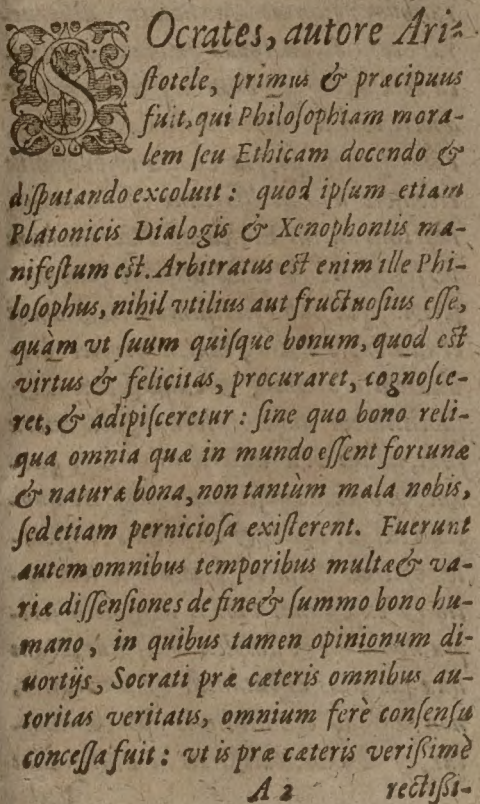 SOcrates, autore Ari-
ſtotele, primus & præcipuus
fuit, qui Philoſophiam mora-
lem ſeu Ethicam docendo &
diſputando excoluit: quod ipſum etiam
Platonicis Dialogis & Xenophontis ma-
nifeſtum eſt. Arbitratus eſt enim ille Phi-
loſophus, nihil vtilius aut fructuoſius eſſe,
quàm vt ſuum quiſque bonum, quod eſt
virtus & felicitas, procuraret, cognoſce-
ret, & adipiſceretur: ſine quo bono reli-
qua omnia quæ in mundo eſſent fortunæ
& naturæ bona, non tantùm mala nobis,
ſed etiam pernicioſa exiſterent. Fuerunt
autem omnibus temporibus multæ & va-
riæ diſſenſiones de fine & ſummo bono hu-
mano, in quibus tamen opinionum di-
uortijs, Socrati præ cæteris omnibus au-
toritas veritatis, omnium ferè conſenſu
conceſſa fuit: vt is præ cæteris veriſſimè
A 2 rectiſſi-